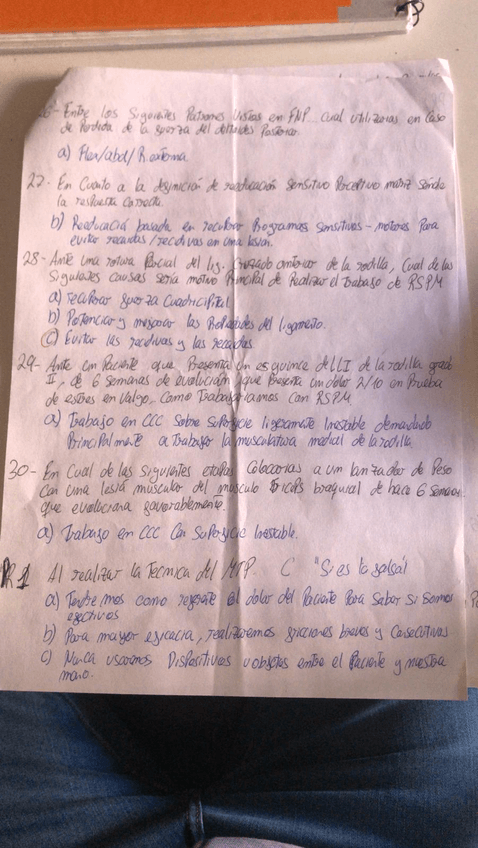 26- Entre los siguientes Patrones vistos en FNP... cual utilizarias en caso
de Perdida de la fuerza del deltoides Posterior.
a) Flex/abd/R. externa
27- En Cuanto a la definición de reeducación sensitivo Perceptivo motriz señale
la respuesta correcta.
b) Reeducación basada en recuperar Programas sensitivos-motores Para
evitar recaidas/recidivas en una lesion.
28- Ante una rotura Parcial del lig. Cruzado anterior de la rodilla, Cual de las
siguientes causas seria motivo Principal de Realizar el trabajo de RSPM
a) recuperar fuerza Cuadricipital
b) Potenciar y mejorar las Propiedades del ligamento.
c) Evitar las recidivas y las recaidas.
29- Ante un Paciente que Presenta un esguince del LI de la rodilla grado
II, de 6 semanas de evolución, que Presenta un dolor 2/10 en Prueba
de estres en Valgo, como trabajariamos con RSPM
a) Trabajo en CCC sobre superficie ligeramente Inestable demandando
Principalmente a trabajar la musculatura medial de la rodilla
30- En Cual de las siguientes etapas Colocarias a un lanzador de Peso
Con una lesión muscular del musculo Triceps braquial de hace 6 semanas
que evoluciona favorablemente.
a) Trabajo en CCC Con superficie Inestable.
R1 Al realizar la Tecnica del MTP. C "Si es la falsa"
a) Tendremos como referente el dolor del Paciente Para saber si somos
efectivos
b) Para mayor eficacia, realizaremos fricciones breves y Consecutivas
c) Nunca usaremos Dispositivos u objetos entre el Paciente y nuestra
mano.